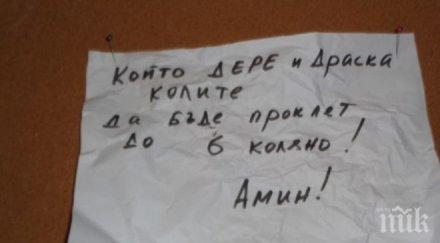 Който ДЕРЕ и Драска
колите
да бъде проклет
до 6 коляно!
Амин!
пик